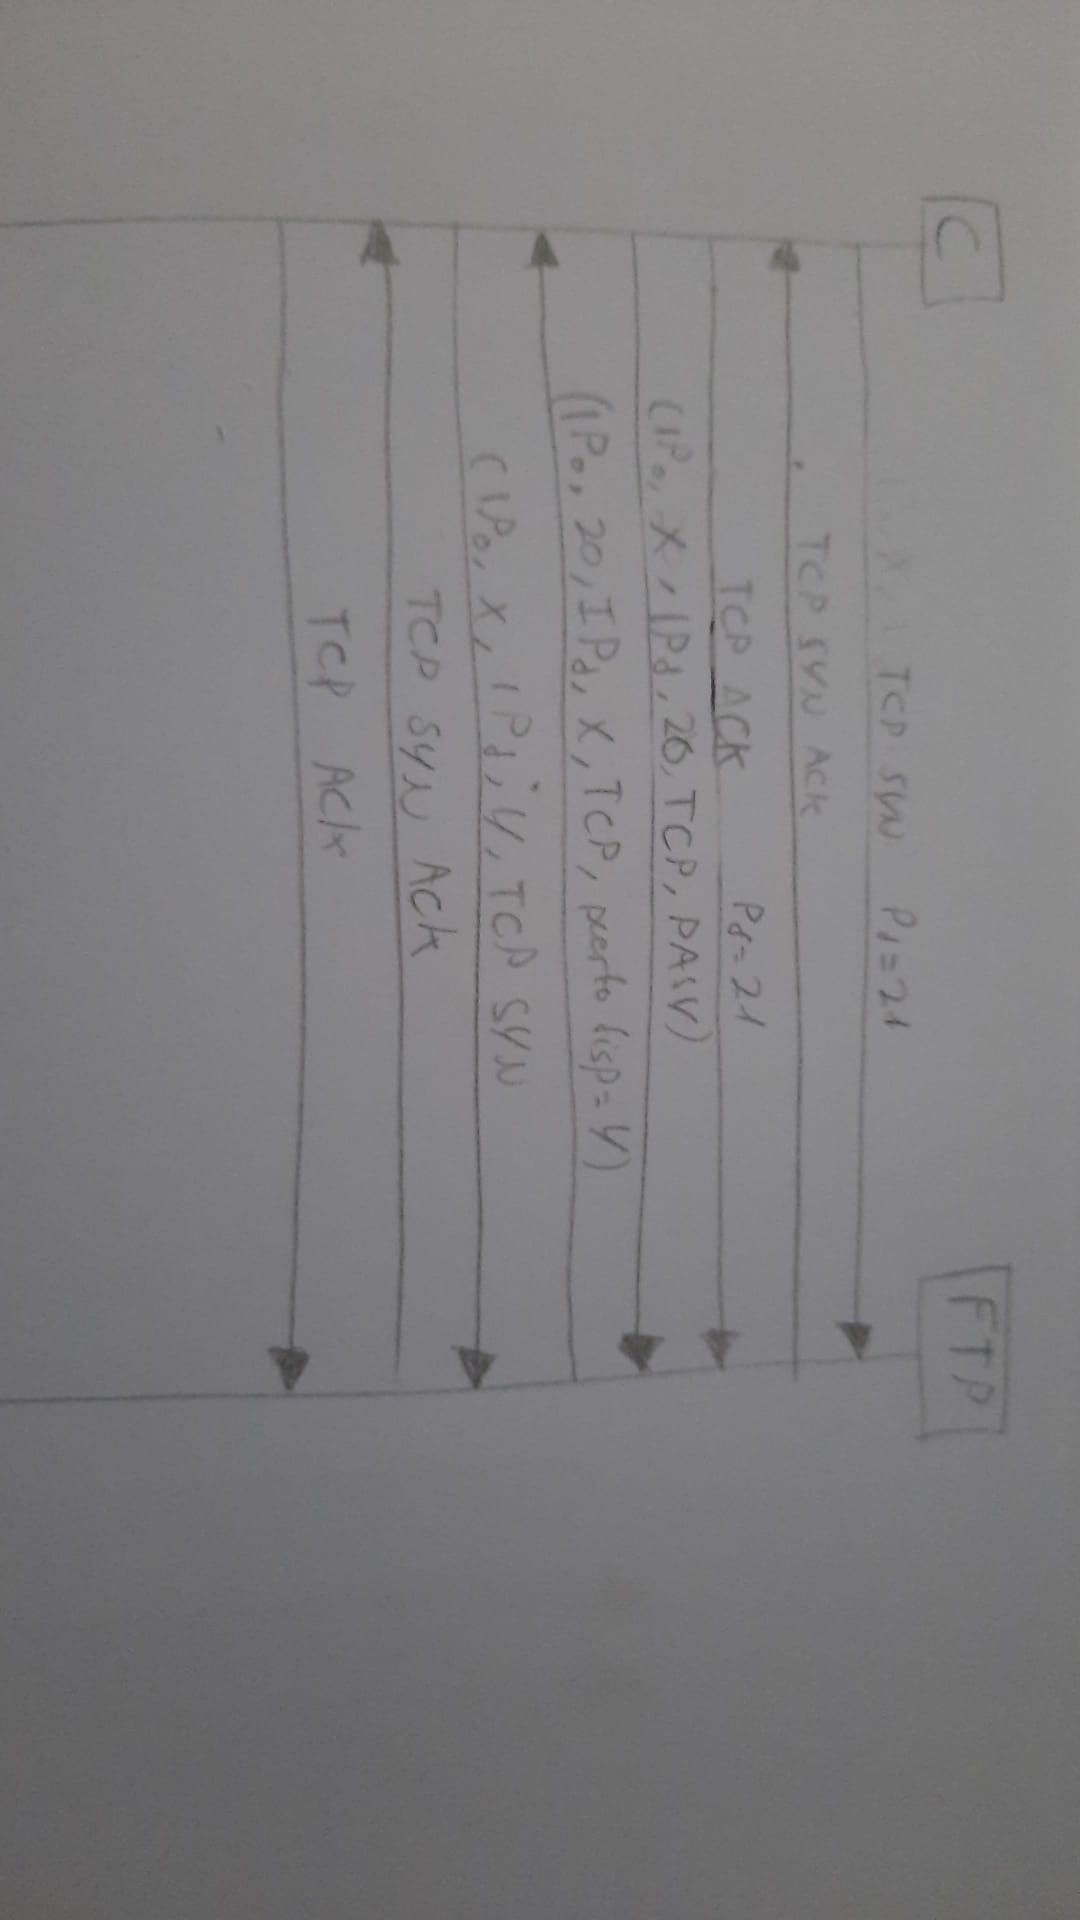 C
FTP
TCP SYN Pd=21
TCP SYN ACK
TCP ACK Pd=21
(IPo, X, IPd, 20, TCP, PASV)
(IPo, 20, IPd, X, TCP, puerto disp=Y)
(IPo, X, IPd, Y, TCP SYN
TCP SYN ACK
TCP ACK